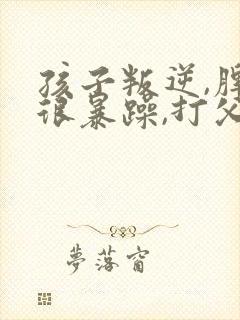 孩子叛逆,脾
很暴躁,打父
夢落窗